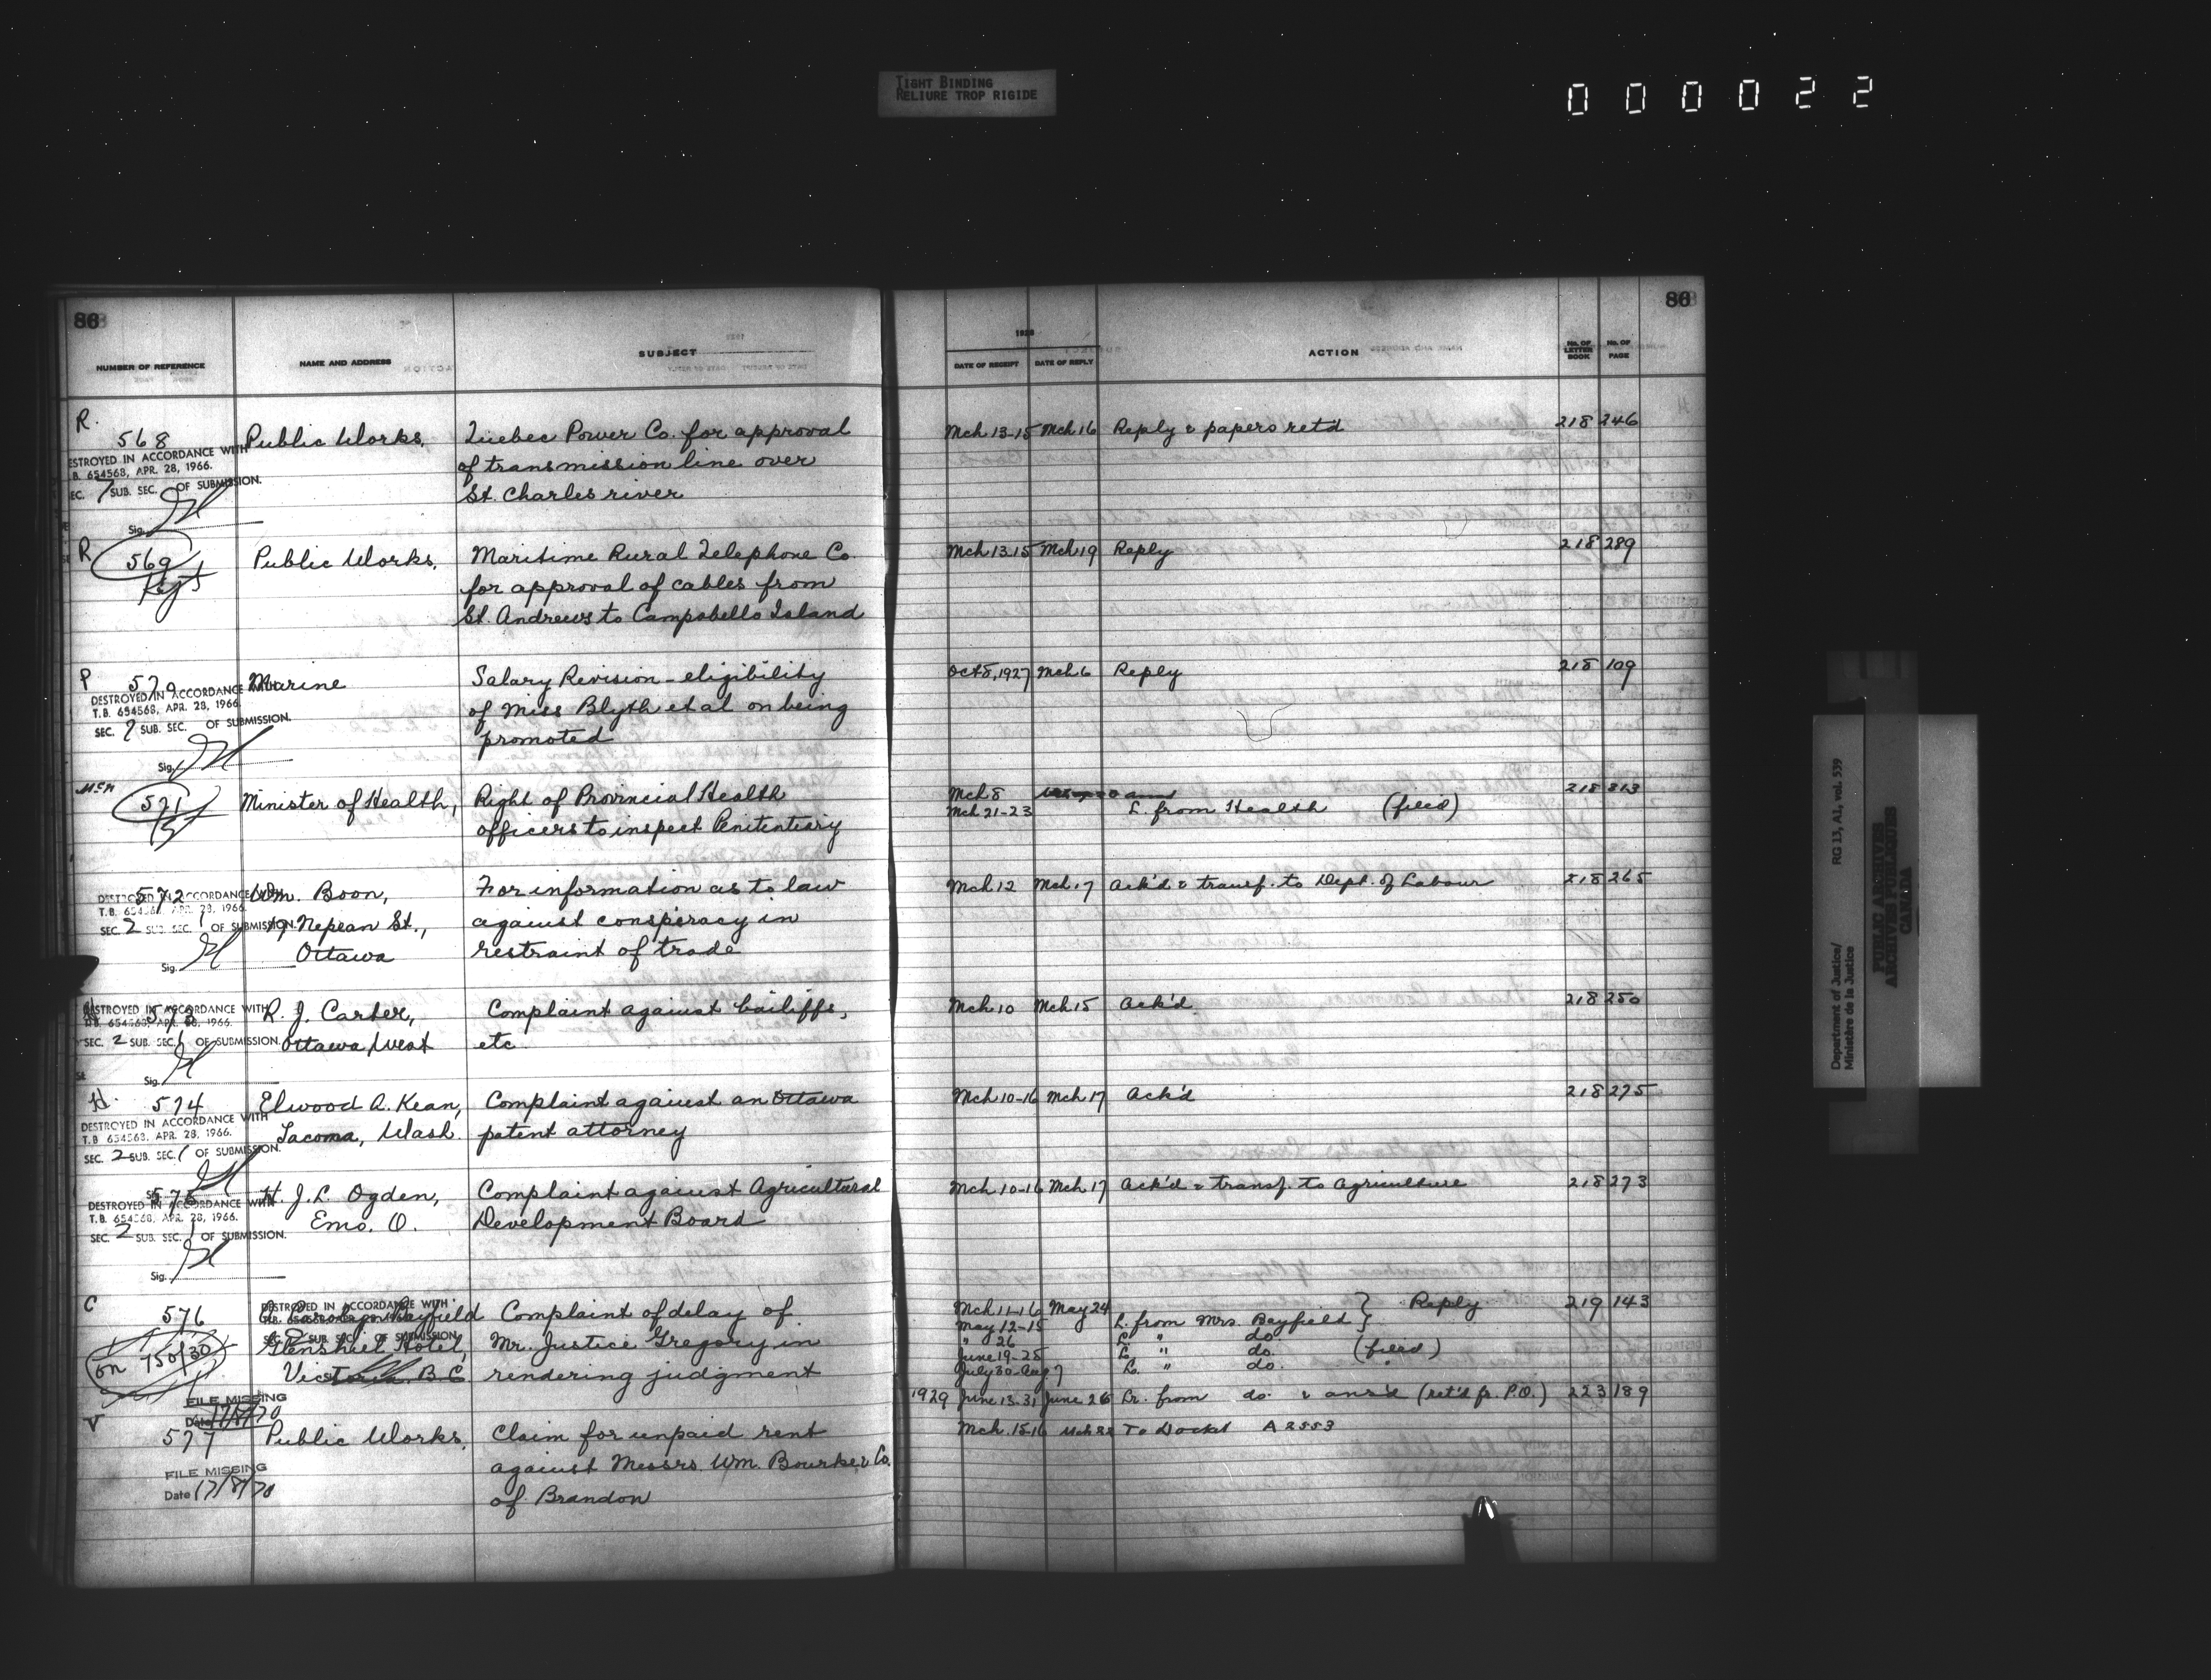 TIGHT BINDING
RELIURE TROP RIGIDE
000022
86
NUMBER OF REFERENCE NAME AND ADDRESS SUBJECT
R.
568 Public Works, Quebec Power Co. for approval
of transmission line over
St. Charles river
DESTROYED IN ACCORDANCE WITH
T.B. 654568, APR. 28, 1966.
SEC. 7 SUB. SEC. OF SUBMISSION.
Sig.
R 569 Public Works, Maritime Rural Telephone Co.
for approval of cables from
St. Andrews to Campobello Island
P 570 Marine Salary Revision - eligibility
of Miss Blyth et al on being
promoted
DESTROYED IN ACCORDANCE WITH
T.B. 654568, APR. 28, 1966.
SEC. 7 SUB. SEC. OF SUBMISSION.
Sig.
McN
571 Minister of Health, Right of Provincial Health
officers to inspect Penitentiary
572 Wm. Boon, For information as to law
Nepean St., against conspiracy in
Ottawa restraint of trade
DESTROYED IN ACCORDANCE WITH
T.B. 654568, APR. 28, 1966.
SEC. 2 SUB. SEC. 1 OF SUBMISSION.
Sig.
573 R. J. Carter, Complaint against bailiffs,
Ottawa West etc
DESTROYED IN ACCORDANCE WITH
T.B. 654568, APR. 28, 1966.
SEC. 2 SUB. SEC. 1 OF SUBMISSION.
Sig.
H. 574 Elwood A. Kean, Complaint against an Ottawa
Tacoma, Wash. patent attorney
DESTROYED IN ACCORDANCE WITH
T.B. 654568, APR. 28, 1966.
SEC. 2 SUB. SEC. 1 OF SUBMISSION.
575 H. J. L. Ogden, Complaint against Agricultural
Emo. O. Development Board
DESTROYED IN ACCORDANCE WITH
T.B. 654568, APR. 28, 1966.
SEC. 2 SUB. SEC. 1 OF SUBMISSION.
Sig.
C
576 Carolyn Bayfield Complaint of delay of
Glenshiel Hotel, Mr. Justice Gregory in
Victoria. B.C rendering judgment
on 750/30
DESTROYED IN ACCORDANCE WITH
SUB SEC. OF SUBMISSION
FILE MISSING
Date 17/8/70
V
577 Public Works, Claim for unpaid rent
against Messrs. Wm. Bourke & Co.
of Brandon
FILE MISSING
Date 17/8/70
86
1928
DATE OF RECEIPT DATE OF REPLY ACTION No. OF LETTER BOOK No. OF PAGE
Mch 13-15 Mch 16 Reply & papers retd 218 246
Mch 13.15 Mch 19 Reply 218 289
Oct 5, 1927 Mch 6 Reply 218 109
Mch 8 218 313
Mch 21-23 L. from Health (filed)
Mch 12 Mch 17 Ack'd & transf. to Dept. of Labour 218 265
Mch 10 Mch 15 Ack'd 218 250
Mch 10-16 Mch 17 Ack'd 218 275
Mch 10-16 Mch 17 Ack'd & transf. to Agriculture 218 273
Mch 11-16 May 24 Reply 219 143
May 12-15 L. from Mrs. Bayfield
" 26 L " do.
June 19-25 L " do. (filed)
July 30-Aug 7 L. " do. "
1929 June 13.31 June 26 Lr. from do. & ans'd (ret'd fr. P.O.) 223 189
Mch. 15-16 To Docket A 2553
Department of Justice/ RG 13, A1, vol. 539
Ministère de la Justice
PUBLIC ARCHIVES
ARCHIVES PUBLIQUES
CANADA